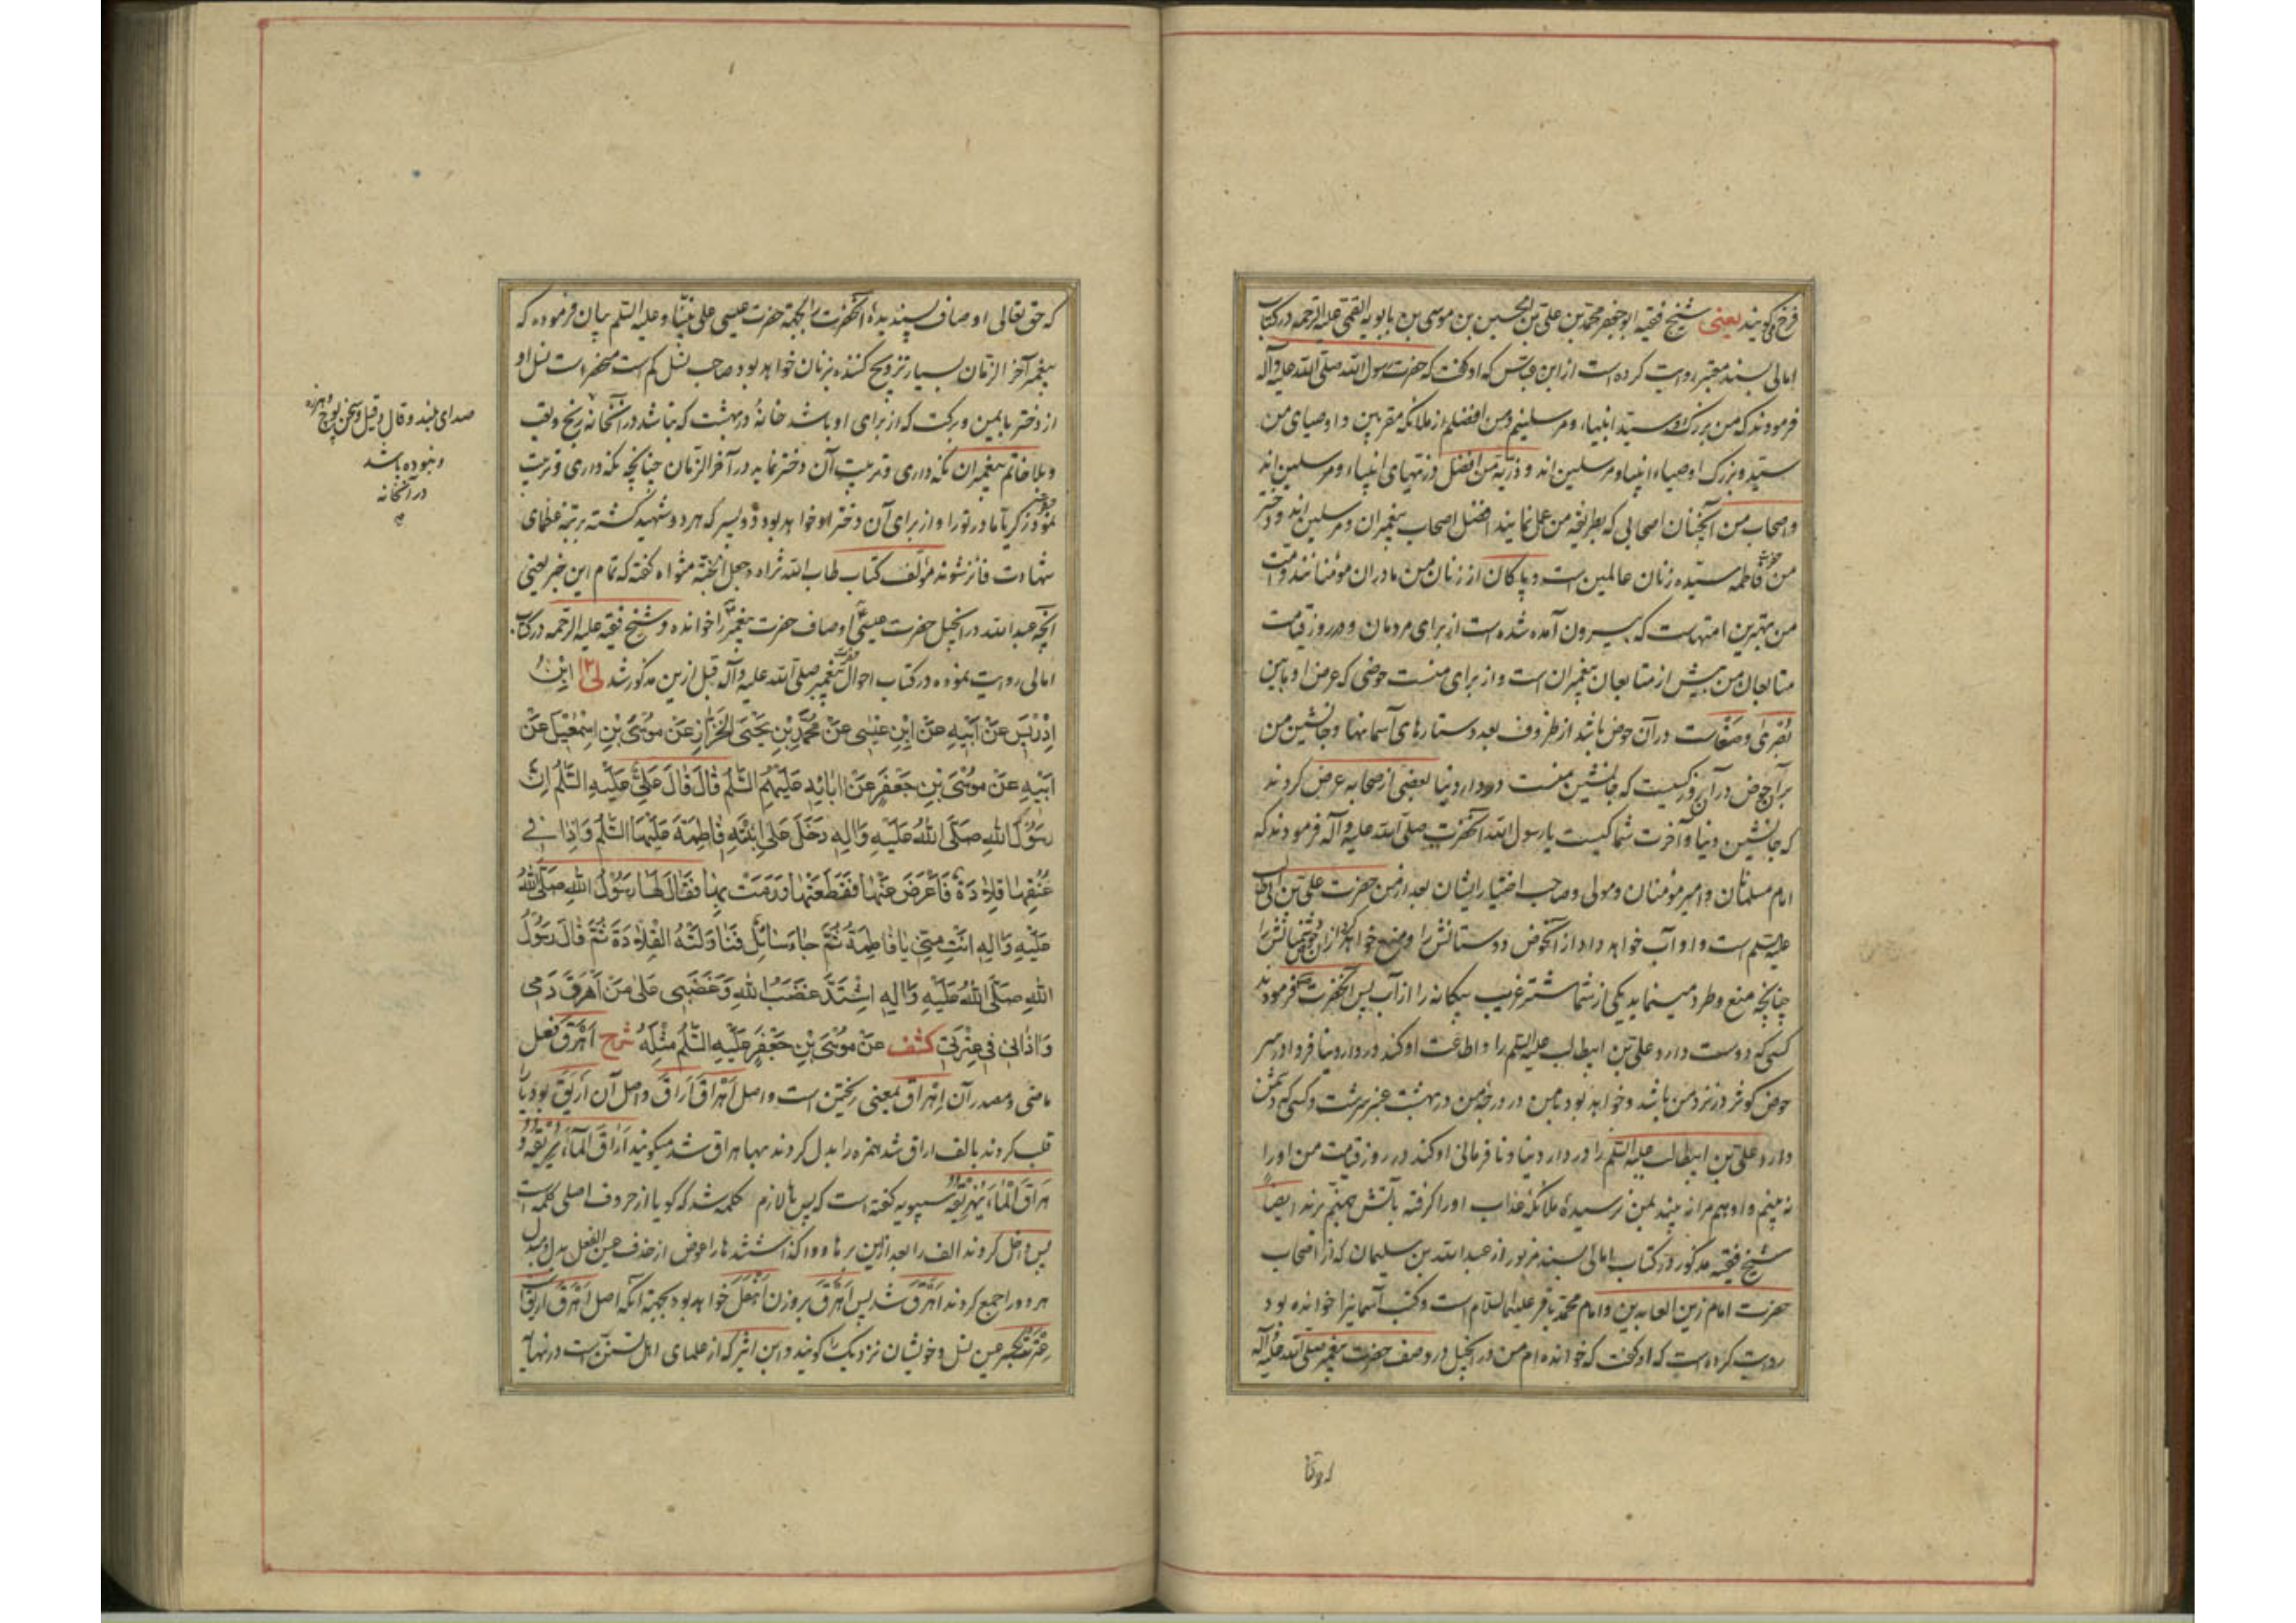 فرخ میگویند یعنی شیخ فقیه ابو جعفر محمد بن علی بن الحسین بن موسی بن بابویه القمی علیه الرحمه در کتاب
امالی بسند معتبر روایت کرده است از ابن عباس که او گفت که حضرت رسول الله صلی الله علیه وآله
فرمودند که من بزرگ و سید انبیاء ومرسلینم ومن افضلم از ملائکه مقربین و اوصیای من
سید و بزرگ اوصیاء انبیا و مرسلین اند و ذریة من افضل ذریتهای انبیاء ومرسلین اند
واصحاب من آنچنان اصحابی که بطریقه من عمل نمایند افضل اصحاب پیغمبران ومرسلین اند و دختر
من حضرت فاطمه سیده زنان عالمین است و پاکان از زنان من مادران مومنانند و امت
من بهترین امتهاست که بیرون آمده شده است از برای مردمان و در روز قیامت
متابعان من بیش از متابعان پیغمبران است و از برای منست حوضی که عرض او مابین
بصری و صنعاست در آن حوض باشد از ظروف بعدد ستارهای آسمانها وجانشین من
بر آن حوض در آن روز کسیست که جانشین منست در دار دنیا بعضی از صحابه عرض کردند
که جانشین دنیا و آخرت شما کیست یا رسول الله آنحضرت صلی الله علیه وآله فرمودند که
امام مسلمانان و امیر مؤمنان و مولی وصاحب اختیار ایشان بعد از من حضرت علی بن ابی طالب
علیه السلم است و او آب خواهد داد از آنحوض دوستانش را و منع خواهد کرد از آن دشمنانش را
چنانچه منع و طرد مینماید یکی از شما شتر غریب بیگانه را از آب پس آنحضرت فرمودند
کسی که دوست دارد علی بن ابیطالب علیه السلم را و اطاعت او کند در دار دنیا فردا در سر
حوض کوثر در نزد من باشد و خواهد بود با من در درجه من در بهشت عنبر سرشت و کسی که دشمن
دارد علی بن ابیطالب علیه السلم را در دار دنیا و نافرمانی او کند در روز قیامت من او را
نه بینم و او هم مرا نه بیند بمن نرسیده ملائکه عذاب او را گرفته بآتش جهنم برند ایضاً
شیخ فقیه مذکور در کتاب امالی بسند مزبور از عبد الله بن سلیمان که از اصحاب
حضرت امام زین العابدین و امام محمد باقر علیهما السلام است و کتب آسمانیرا خوانده بود
روایت کرده است که او گفت که خوانده ام من در انجیل در وصف حضرت پیغمبر صلی الله علیه وآله
که حق تعالی
که حق تعالی اوصاف پسندیده آنحضرت را بجهة حضرت عیسی علی نبینا وعلیه السلم بیان فرموده که
پیغمبر آخر الزمان بسیار تزویج کننده بزنان خواهد بود صاحب نسل کم است منحصر است نسل او
از دختر با یمین و برکت که از برای او باشد خانهٔ در بهشت که نباشد در آنخانه رنج و تعب
و بلا خاتم پیغمبران نگه داری و تربیت آن دختر نماید در آخر الزمان چنانچه نگه داری و تربیت
نمود حضرت زکریا مادر تو را و از برای آن دختر او خواهد بود دو پسر که هر دو شهید گشته برتبهٔ عظمای
شهادت فائز شوند مؤلف کتاب طاب الله ثراه وجعل الجنة مثواه گفته که تمام این خبر یعنی
آنچه عبد الله در انجیل حضرت عیسی اوصاف حضرت پیغمبر را خوانده و شیخ فقیه علیه الرحمه در کتاب
امالی روایت نموده در کتاب احوال حضرت پیغمبر صلی الله علیه وآله قبل ازین مذکور شد لی ابْنُ
اِدْرِیسَ عَنْ اَبِیهِ عَنْ ابْنِ عِیسی عَنْ مُحَمَّدِ بْنِ یَحْیَی الْخَزّازِ عَنْ مُوسَی بْنِ اِسْمعیلَ عَنْ
اَبِیهِ عَنْ مُوسَی بْنِ جَعْفَرٍ عَنْ ابائِهِ عَلَیْهِمُ السَّلمُ قالَ قالَ عَلِیٌّ عَلَیْهِ السَّلمُ اِنَّ
رَسُولَ اللهِ صَلَّی اللهُ عَلَیْهِ وَالِهِ دَخَلَ عَلَی ابْنَتِهِ فاطِمَةَ عَلَیْهَا السَّلمُ وَاِذا فی
عُنُقِها قِلادَةٌ فَاَعْرَضَ عَنْها فَقَطَعَتْها وَرَمَتْ بِها فَقالَ لَها رَسُولُ اللهِ صَلَّی اللهُ
عَلَیْهِ وَالِهِ اَنْتِ مِنّی یا فاطِمَةُ ثُمَّ جاءَ سائِلٌ فَناوَلَتْهُ القِلادَةَ ثُمَّ قالَ رَسُولُ
اللهِ صَلَّی اللهُ عَلَیْهِ وَالِهِ اشْتَدَّ غَضَبُ اللهِ وَغَضَبی عَلی مَنْ اَهْرَقَ دَمی
وَاذانی فی عِتْرَتی کشف عَنْ مُوسَی بْنِ جَعْفَرٍ عَلَیْهِ السَّلمُ مِثْلَهُ شرح اَهْرَقَ فعل
ماضی و مصدر آن اِهْراق بمعنی ریختن است و اصل اَهْراقَ اَراقَ و اصل آن اَرْیَقَ بود یا را
قلب کردند بالف اراق شد همزه را بدل کردند بها هراق شد میگویند اَراقَ الْماءَ یُریقُهُ و
هَراقَ الْماءَ یُهَریقُهُ سیبویه گفته است که پس ها لازم کلمه شد که گویا از حروف اصلی کلمه است
پس داخل کردند الف را بعد ازین بر ها و واگذاشتند ها را عوض از حذف عین الفعل بدل و مبدل
هر دو را جمع کردند اَهْرَقَ شد پس اَهْرَقَ بر وزن اَفْعَلَ خواهد بود بجهة آنکه اصل اَهْرَقَ اَرْیَقَ است
عترت بکسر عین نسل و خویشان نزدیک را گویند و ابن اثیر که از علمای اهل تسنن است در نهایه
صدای بلند و قال وقیل و سخن پوچ و هرزه
و نبوده باشد
در آنخانه